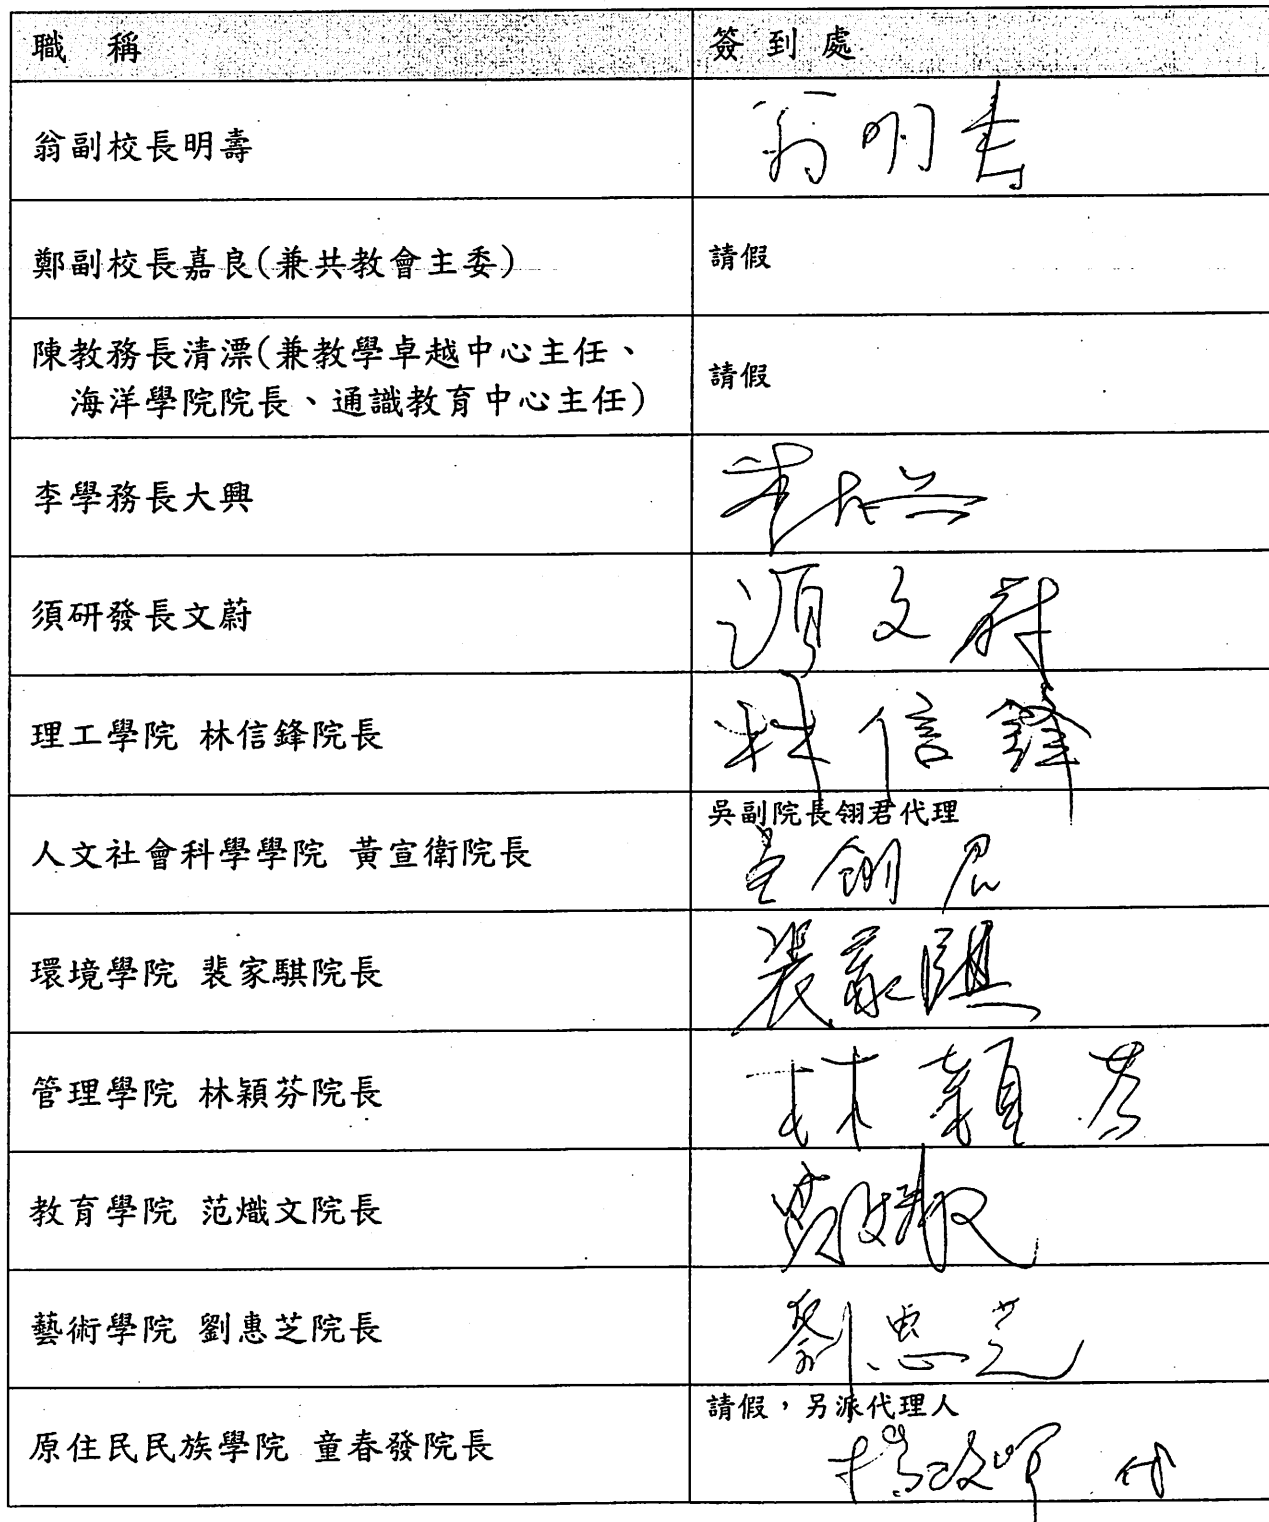 職　稱　簽到處
翁副校長明壽　翁明壽
鄭副校長嘉良(兼共教會主委)　請假
陳教務長清漂(兼教學卓越中心主任、
海洋學院院長、通識教育中心主任)　請假
李學務長大興　李大興
須研發長文蔚　須文蔚
理工學院 林信鋒院長　林信鋒
吳副院長翎君代理
人文社會科學學院 黃宣衛院長　吳翎君
環境學院 裴家騏院長　裴家騏
管理學院 林穎芬院長　林穎芬
教育學院 范熾文院長
藝術學院 劉惠芝院長　劉惠芝
請假，另派代理人
原住民民族學院 童春發院長　代